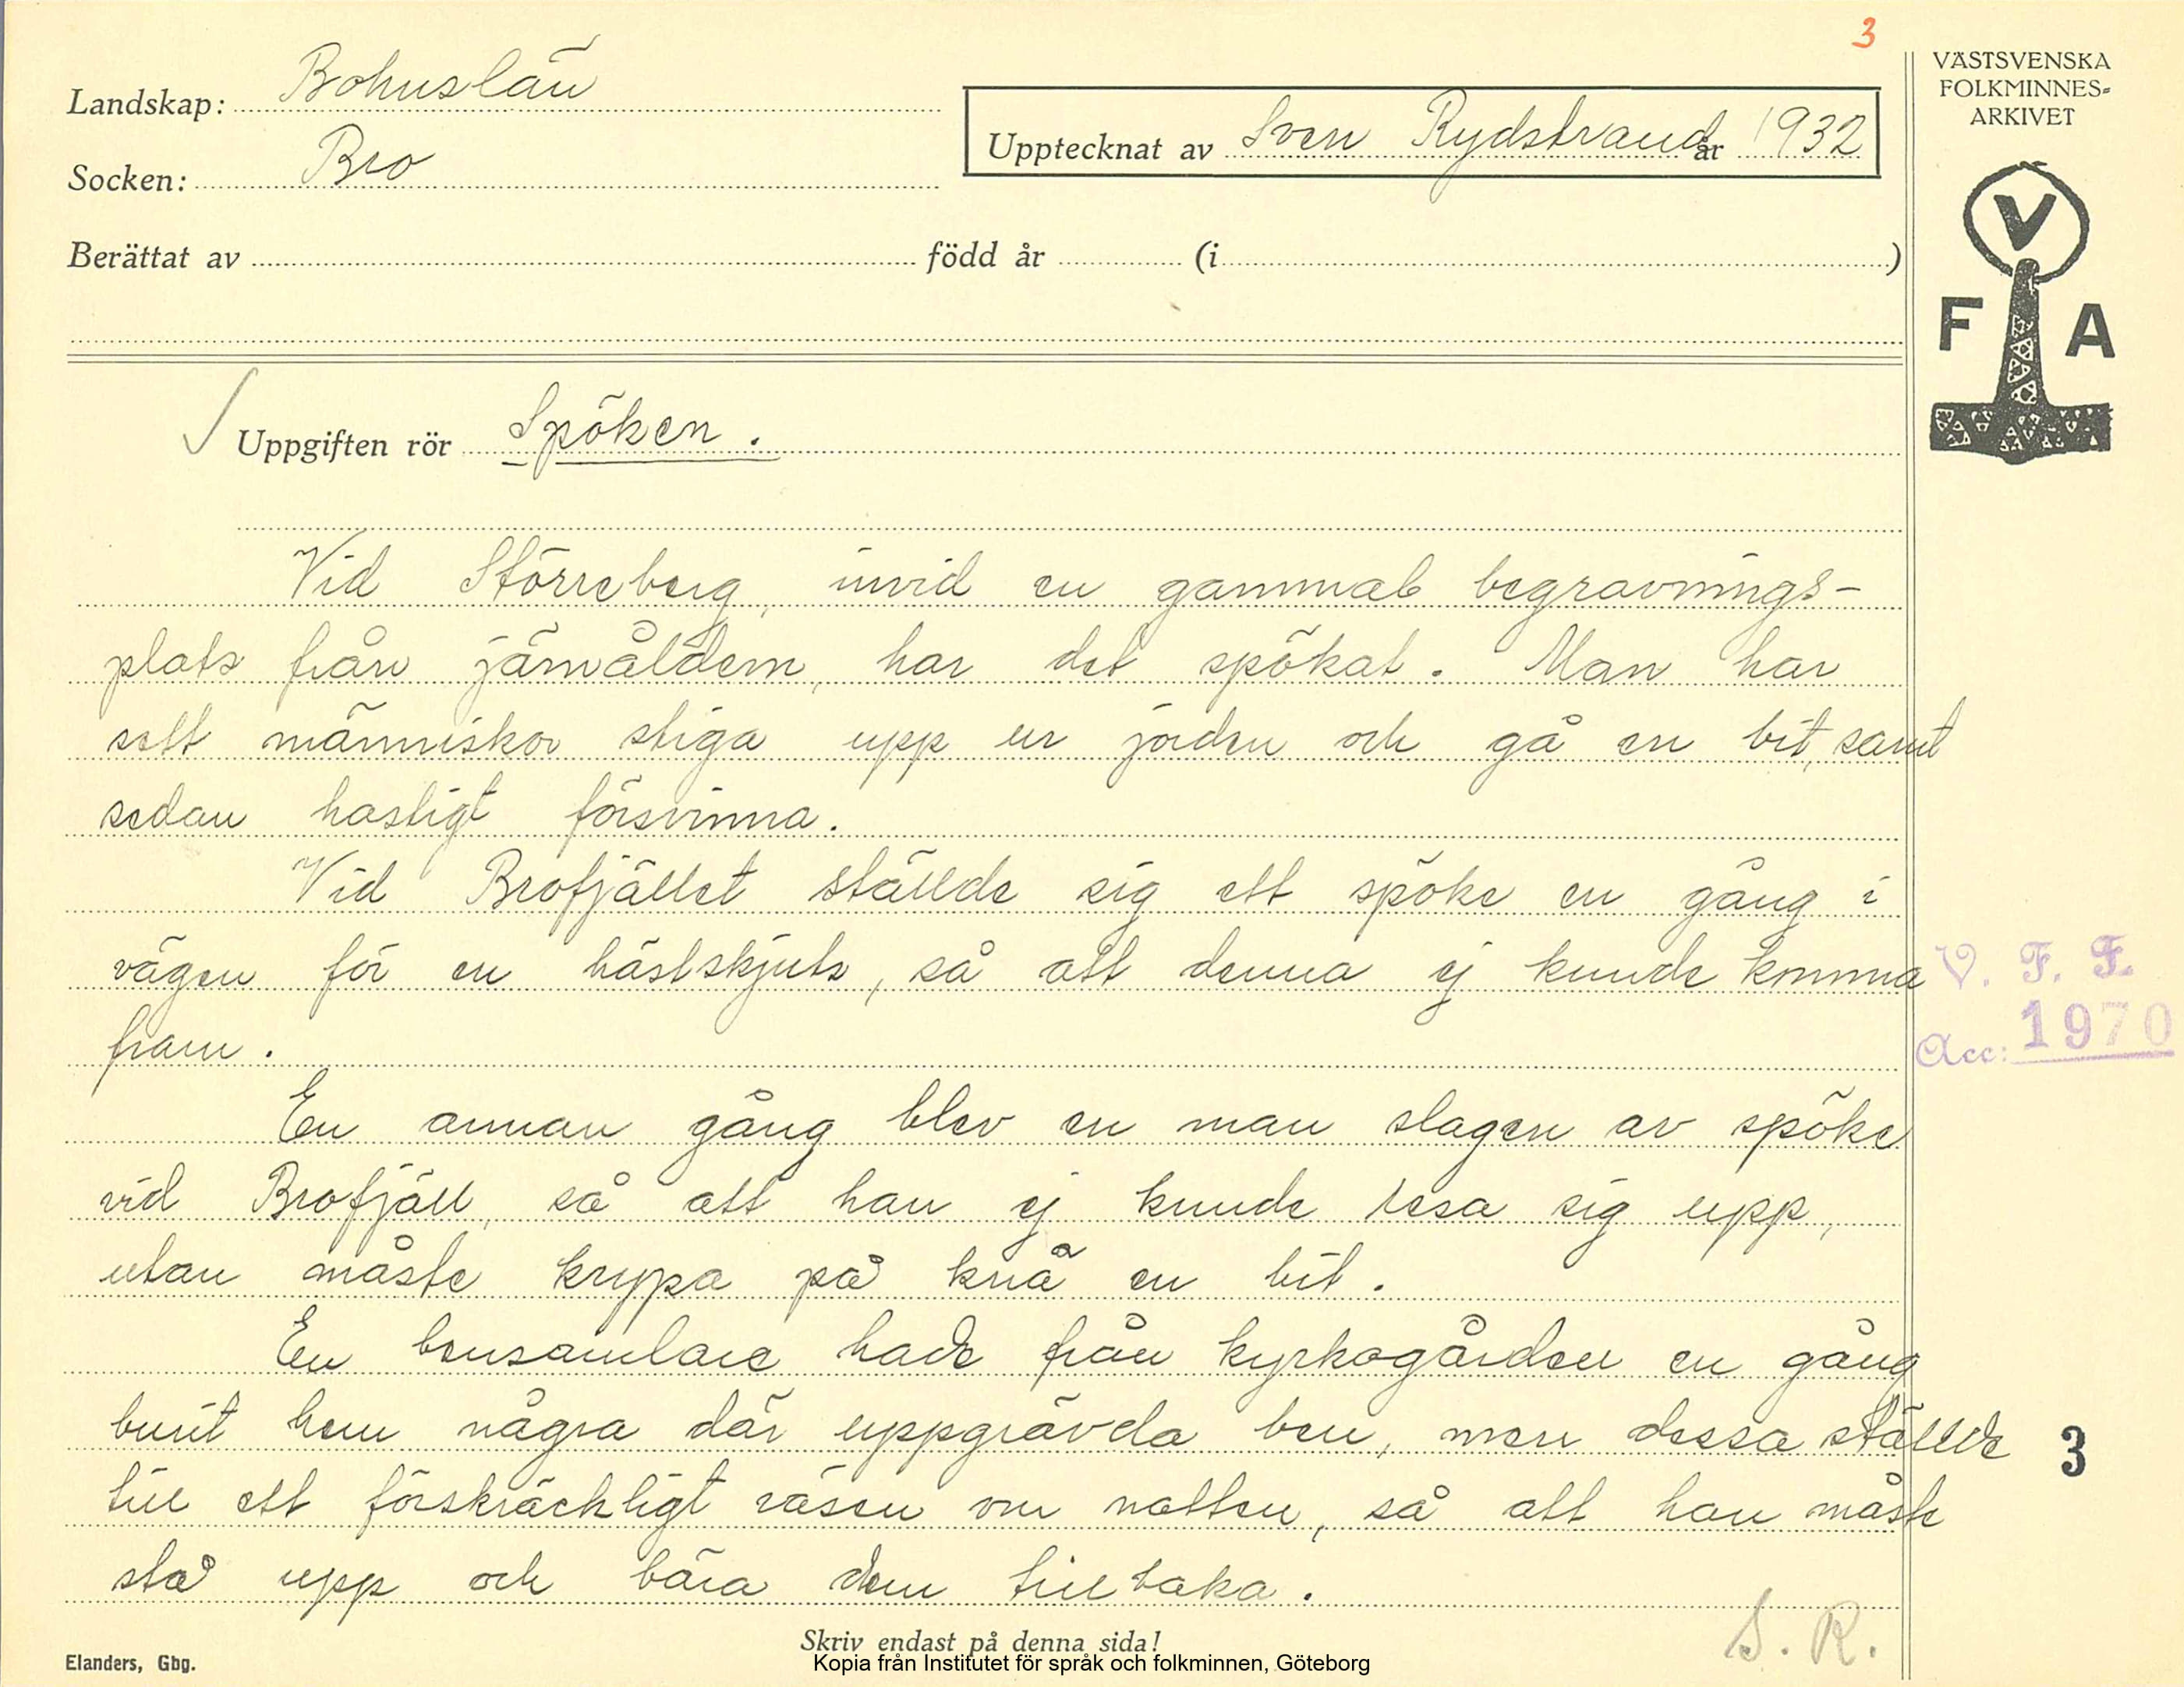 3
VÄSTSVENSKA
FOLKMINNES=
ARKIVET
Landskap: Bohuslän
Upptecknat av Sven Rydstrand år 1932
Socken: Bro
Berättat av född år (i )
V
F A
Uppgiften rör Spöken.
Vid Störreberg, invid en gammal begravnings-
plats från järnåldern, har det spökat. Man har
sett människor stiga upp ur jorden och gå en bit, samt
sedan hastigt försvinna.
Vid Brofjället ställde sig ett spöke en gång i
vägen för en hästskjuts, så att denna ej kunde komma
fram.
V. F. F.
Acc: 1970
En annan gång blev en man slagen av spöke
vid Brofjäll, så att han ej kunde resa sig upp,
utan måste krypa på knä en bit.
En bensamlare hade från kyrkogården en gång
burit hem några där uppgrävda ben, men dessa ställde
3
till ett förskräckligt väsen om natten, så att han måste
stå upp och bära dem tillbaka.
S. R.
Skriv endast på denna sida!
Elanders, Gbg.
Kopia från Institutet för språk och folkminnen, Göteborg